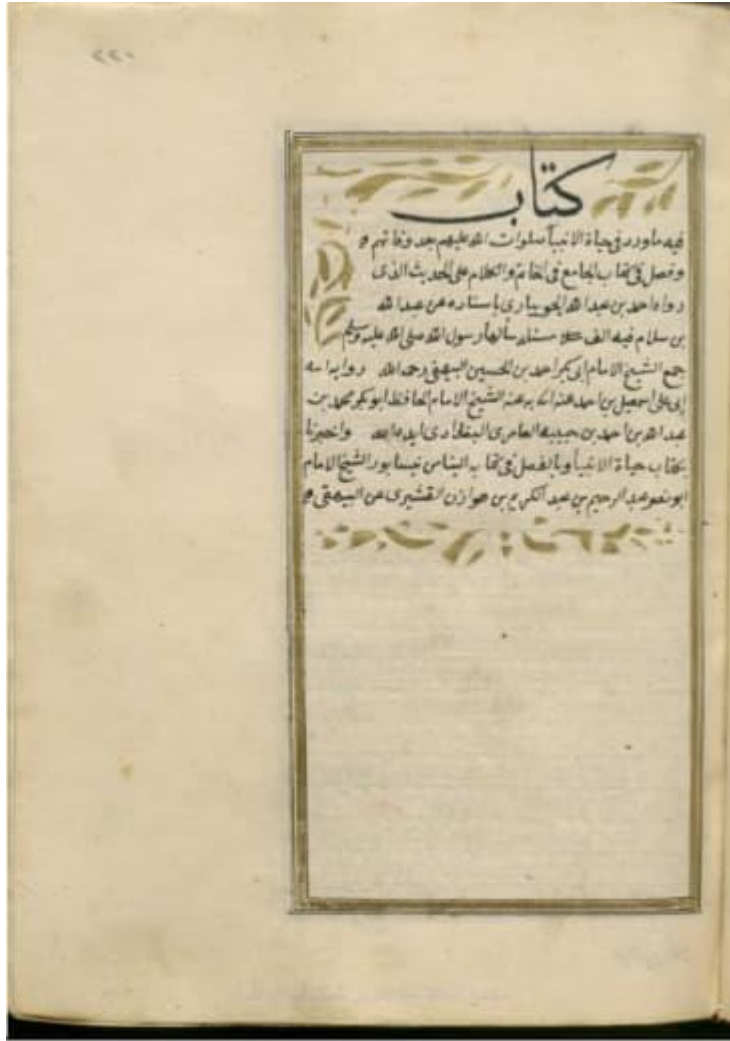 ٢٢٠
كتاب
فيه ما ورد في حياة الانبيآ صلوات الله عليهم بعد وفاتهم
وفصل في كتاب الجامع في الخاتم والكلام على الحديث الذى
رواه احمد بن عبد الله الجويبارى باسناده عن عبد الله
بن سلام فيه الف مسئله سألها رسول الله صلى الله عليه وسلم
جمع الشيخ الامام ابى بكر احمد بن الحسين البيهقى رحمه الله روايه ابنه
ابى على اسمعيل بن احمد عنه روايه عنه الشيخ الامام الحافظ ابو بكر محمد بن
عبد الله بن احمد بن حبيبه العامرى البغدادى ايده الله واخبرنا
بكتاب حياة الانبيآ وبالفصل في كتابه الينا من نيسابور الشيخ الامام
ابو نصر عبد الرحيم بن عبد الكريم بن هوازن القشيرى عن البيهقى